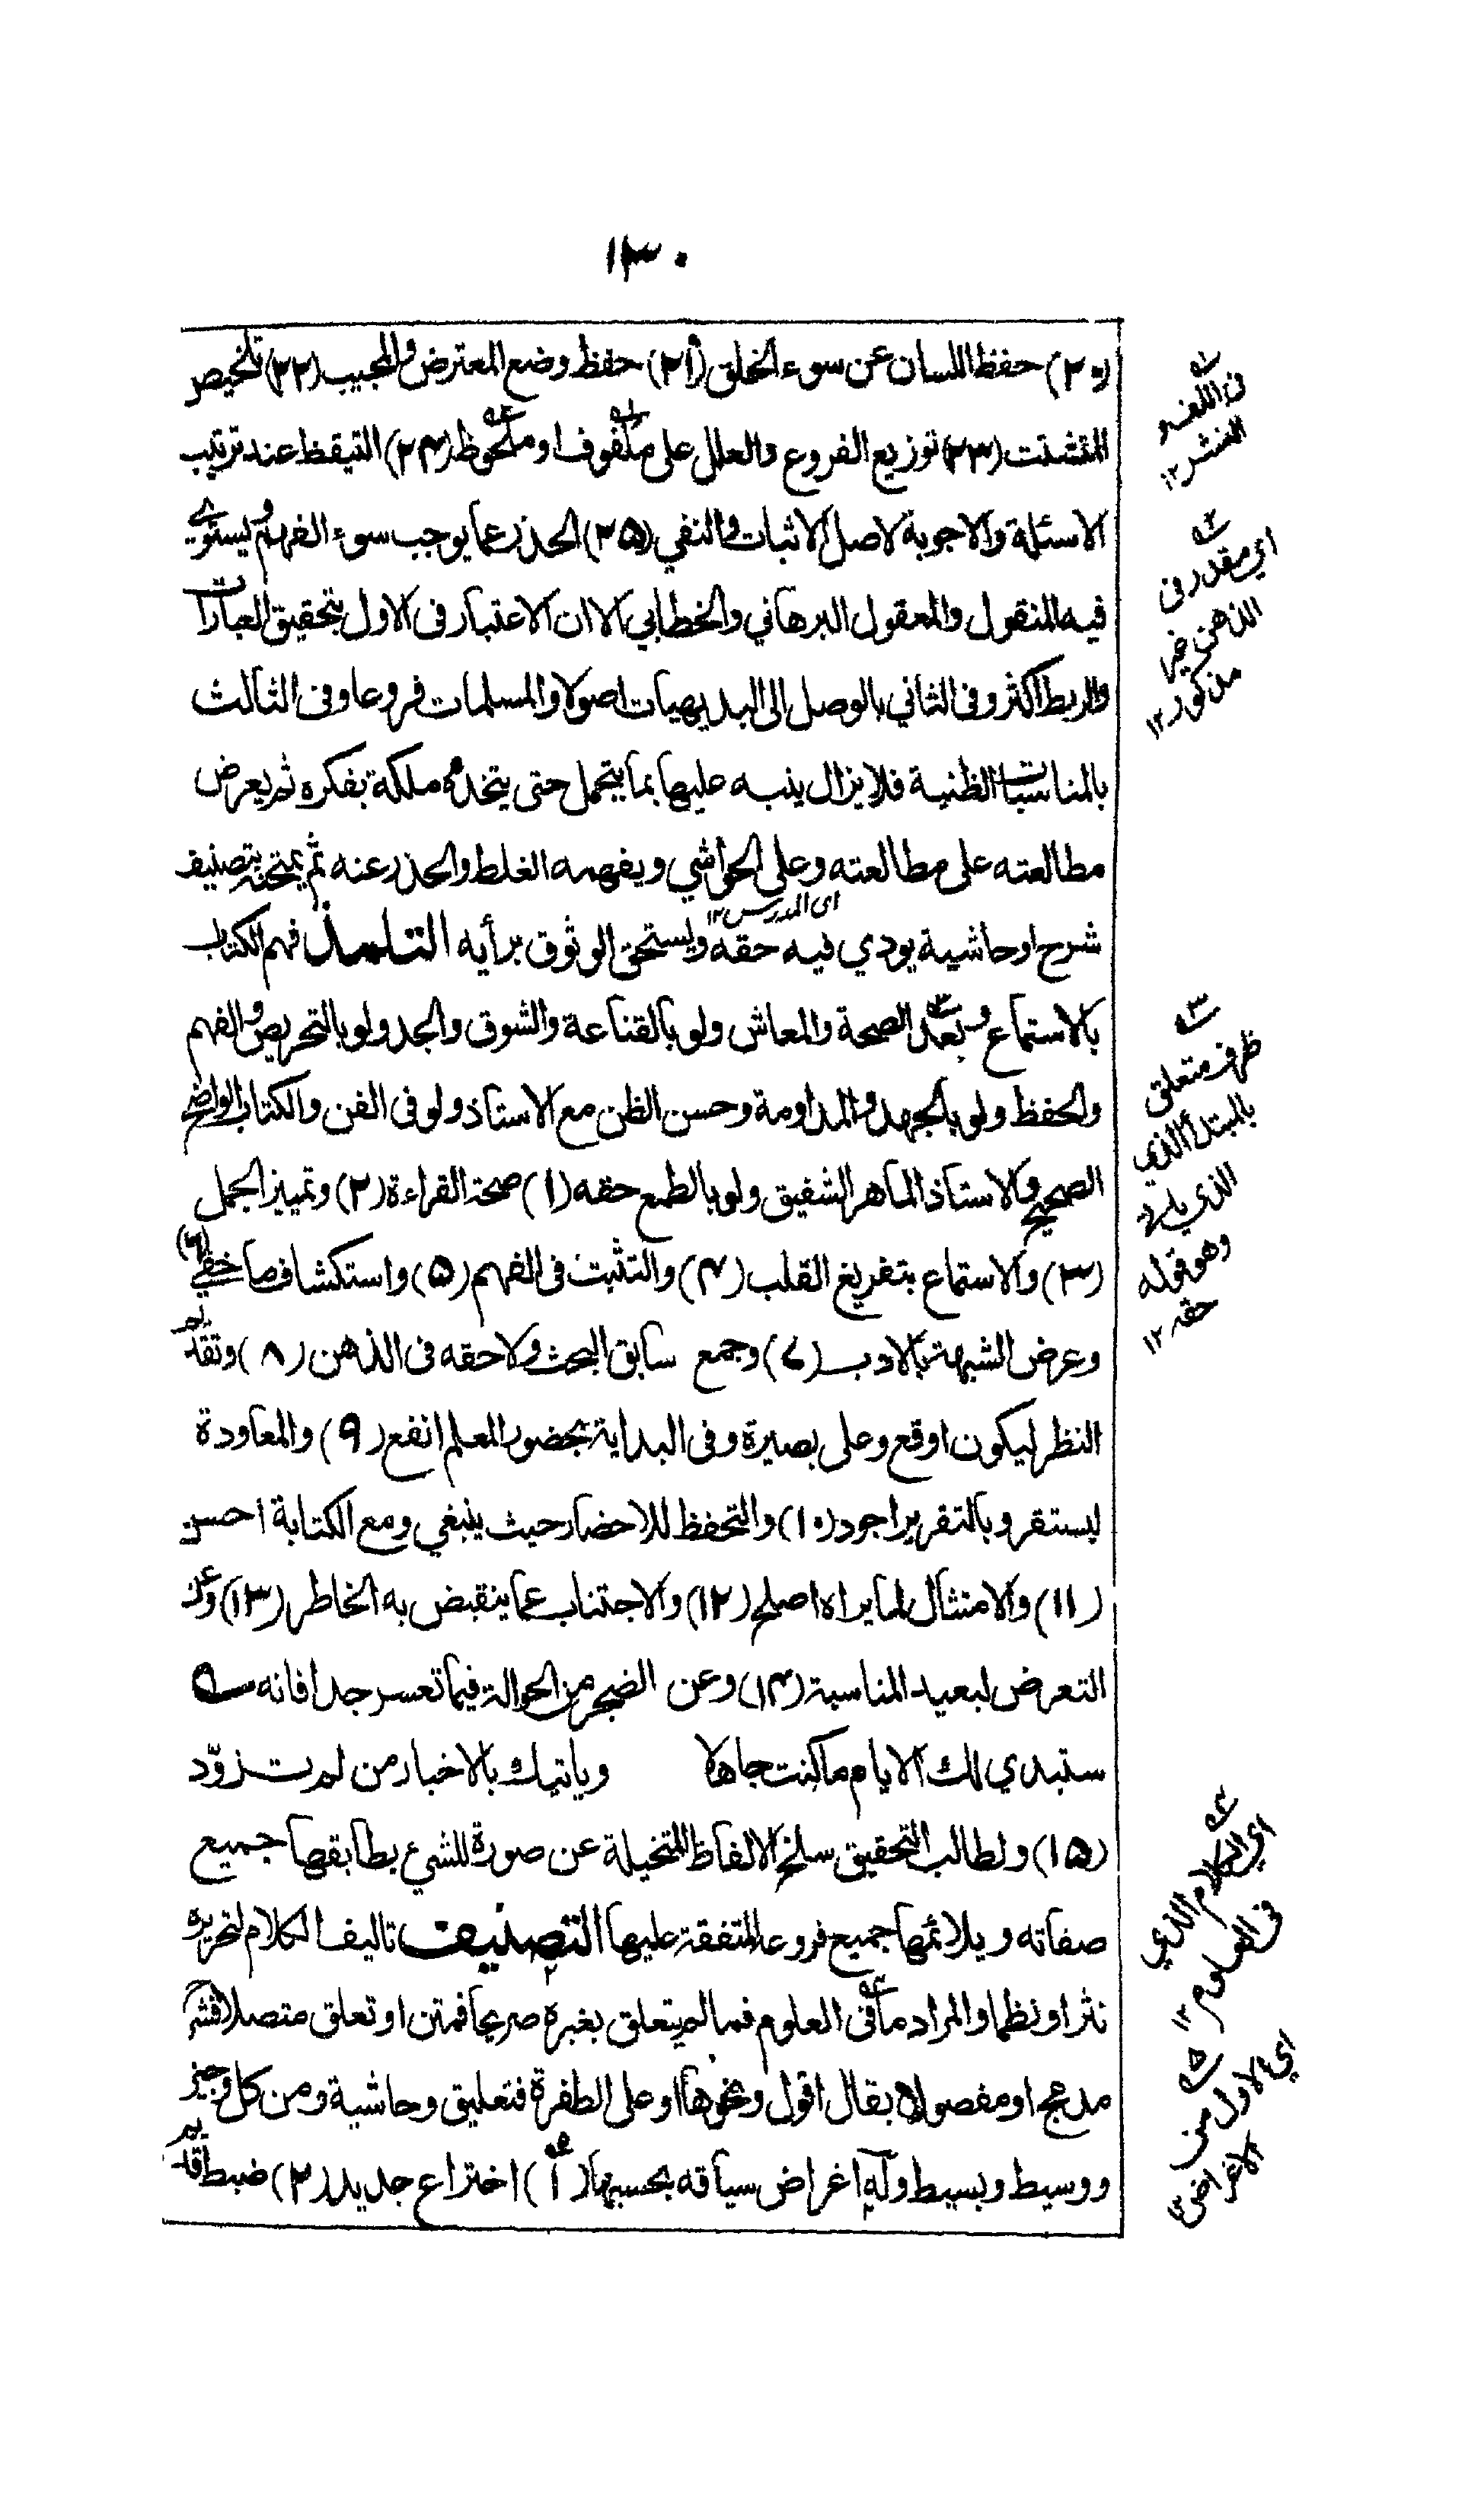 ١٣٠
(٢٠) حفظ اللسان عن سوء الخلق (٢١) حفظ وضع المعترض والمجيب (٢٢) تلخيص
المتشتت (٢٣) توزيع الفروع والعلل على ملفوف او ملحوظ (٢٤) التيقظ عند ترتيب
الاسئلة والاجوبة لاصل الاثبات والنفي (٢٥) الحذر عما يوجب سوء الفهم ويستوي
فيه المنقول والمعقول البرهاني والخطابي الا ان الاعتبار فى الاول بتحقيق العبارات
والربط اكثر وفى الثاني بالوصل الى البديهيات اصولا والمسلمات فروعا وفى الثالث
بالمناسبات الظنية فلا يزال ينبه عليها بما يتحمل حتى يتخذه ملكة بفكره ثم يعرض
مطالعته على مطالعته وعلى الحواشي ويفهمه الغلط والحذر عنه ثم يمتحنه بتصنيف
اى المدرس١٢
شرح او حاشية يودي فيه حقه ويستحق الوثوق برأيه التلمذ فهم الكتاب
بالاستماع وبعد الصحة والمعاش ولو بالقناعة والشوق والجد ولو بالتحريص والفهم
والحفظ ولو بالجهد والمداومة وحسن الظن مع الاستاذ ولو فى الفن والكتاب الواضح
الصحيح والاستاذ الماهر الشفيق ولو بالطمع حقه (١) صحة القراءة (٢) وتمييز الجمل
(٣) والاستماع بتفريغ القلب (٤) والتثبت فى الفهم (٥) واستكشاف ما خفي (٦)
وعرض الشبهة بالادب (٧) وجمع سابق البحث ولاحقه فى الذهن (٨) وتقديم
النظر ليكون اوقع وعلى بصيرة وفى البداية بحضور المعلم انفع (٩) والمعاودة
ليستقر وبالتقرير اجود (١٠) والتحفظ للاحضار حيث ينبغي ومع الكتابة احسن
(١١) والامتثال لما يراه اصلح (١٢) والاجتناب عما ينقبض به الخاطر (١٣) وعن
التعرض لبعيد المناسبة (١٤) وعن الضجر من الحوالة فيما تعسر جدا فانه
ستبدي لك الايام ما كنت جاهلا وياتيك بالاخبار من لم تزوّد
(١٥) ولطالب التحقيق سلخ الالفاظ المتخيلة عن صورة للشيء يطابقها جميع
صفاته ويلائمها جميع فروعا المتفقة عليها التصنيف تاليف الكلام لتحريره
نثرا او نظما والمراد ما فى العلوم فما لم يتعلق بغيره صريحا فمتن او تعلق متصلا فشرح
مدمج او مفصولا بقال اقول ونحوها او على الطفرة فتعليق وحاشية ومن كل وجيز
ووسيط وبسيط وله اغراض سياقه بحسبها (١) اختراع جديد (٢) ضبط قديم
فى اللف و
النشر ١٢
اي مقدر فى
الذهن غير
مذكور ١٢
ظرف متعلق
بالمبتدأ الذي
الذي يليه
وهو قوله
حقه ١٢
اي الكلام الذي
فى العلوم ١٢
اي الاول من
الاغراض ١٢